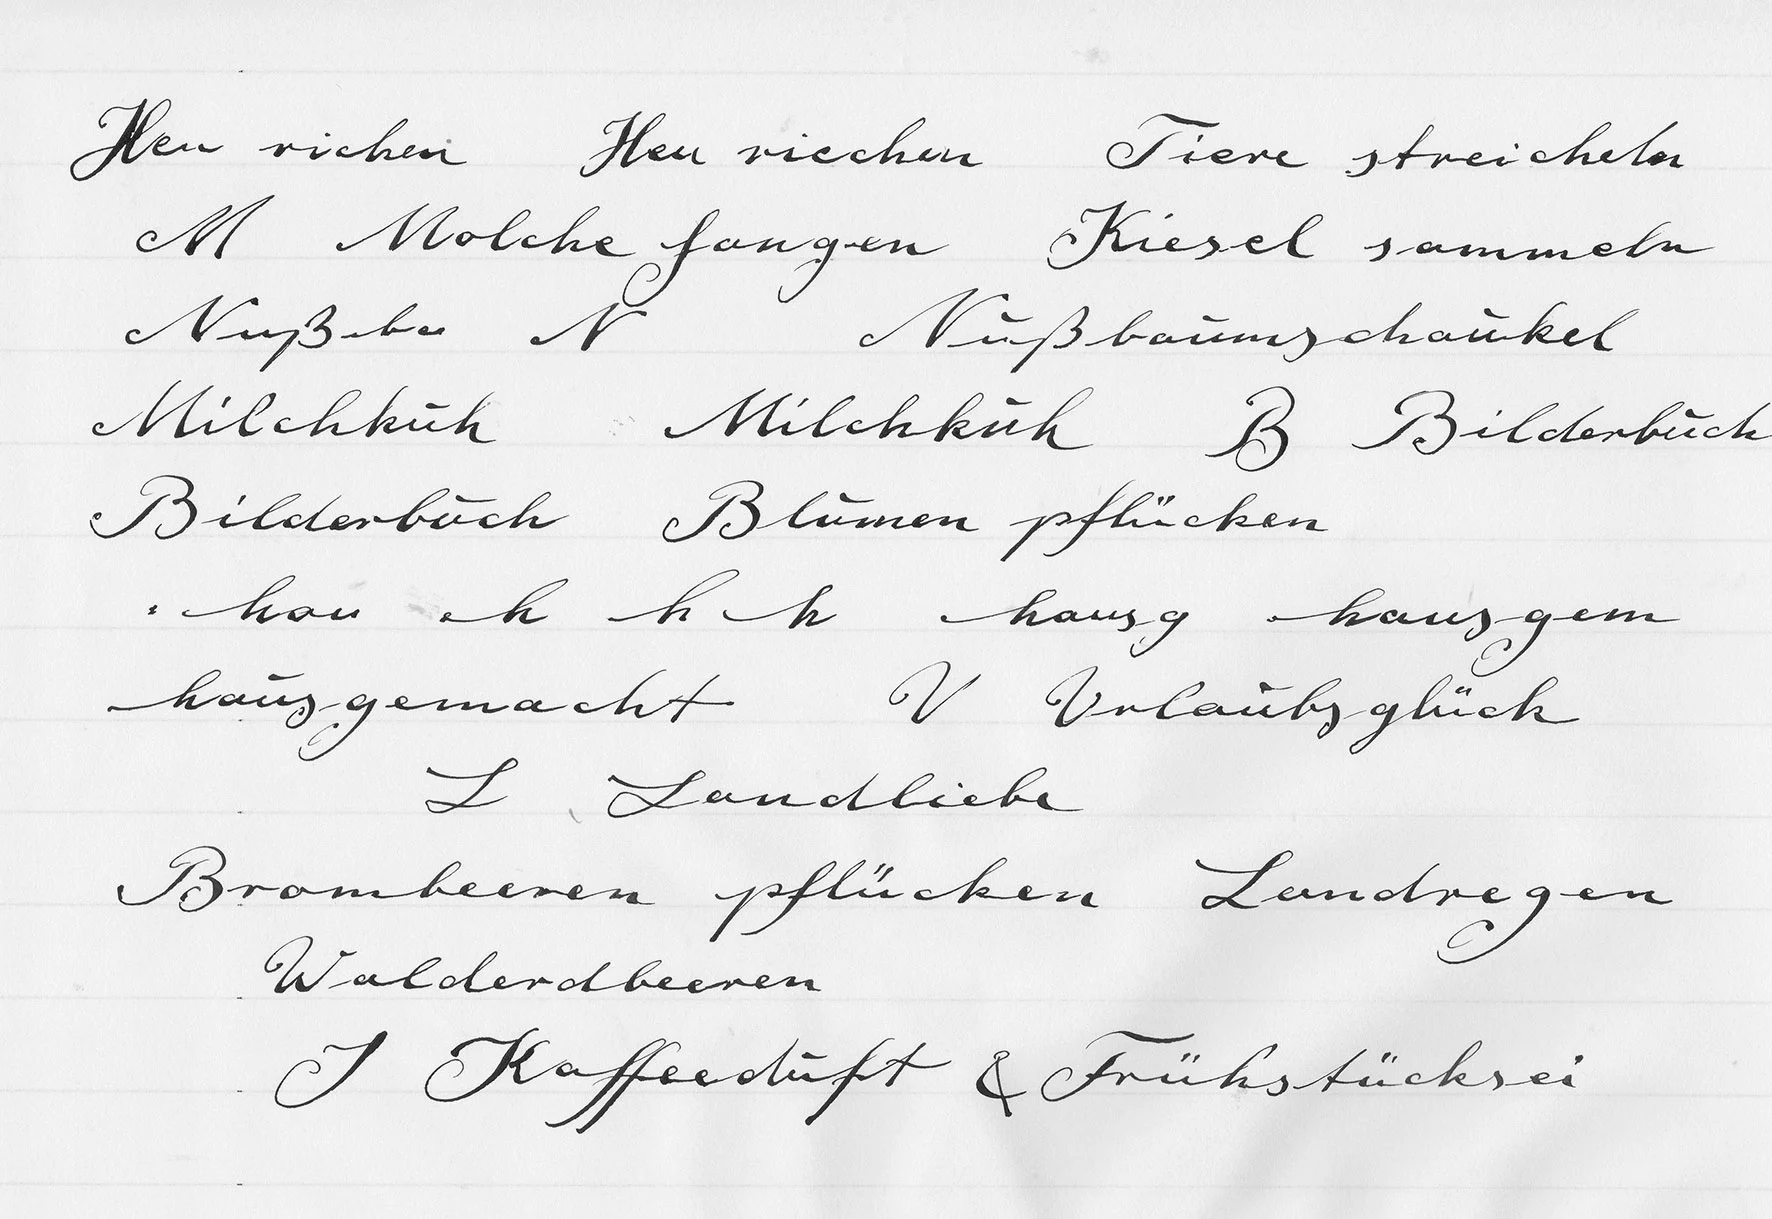 Heu richen Heu riechen Tiere streicheln
M Molche fangen Kiesel sammeln
Nußba N Nußbaumschaukel
Milchkuh Milchkuh B Bilderbuch
Bilderbuch Blumen pflücken
hau h h h hausg hausgem
hausgemacht V Urlaubsglück
L Landliebe
Brombeeren pflücken Landregen
Walderdbeeren
J Kaffeeduft & Frühstücksei